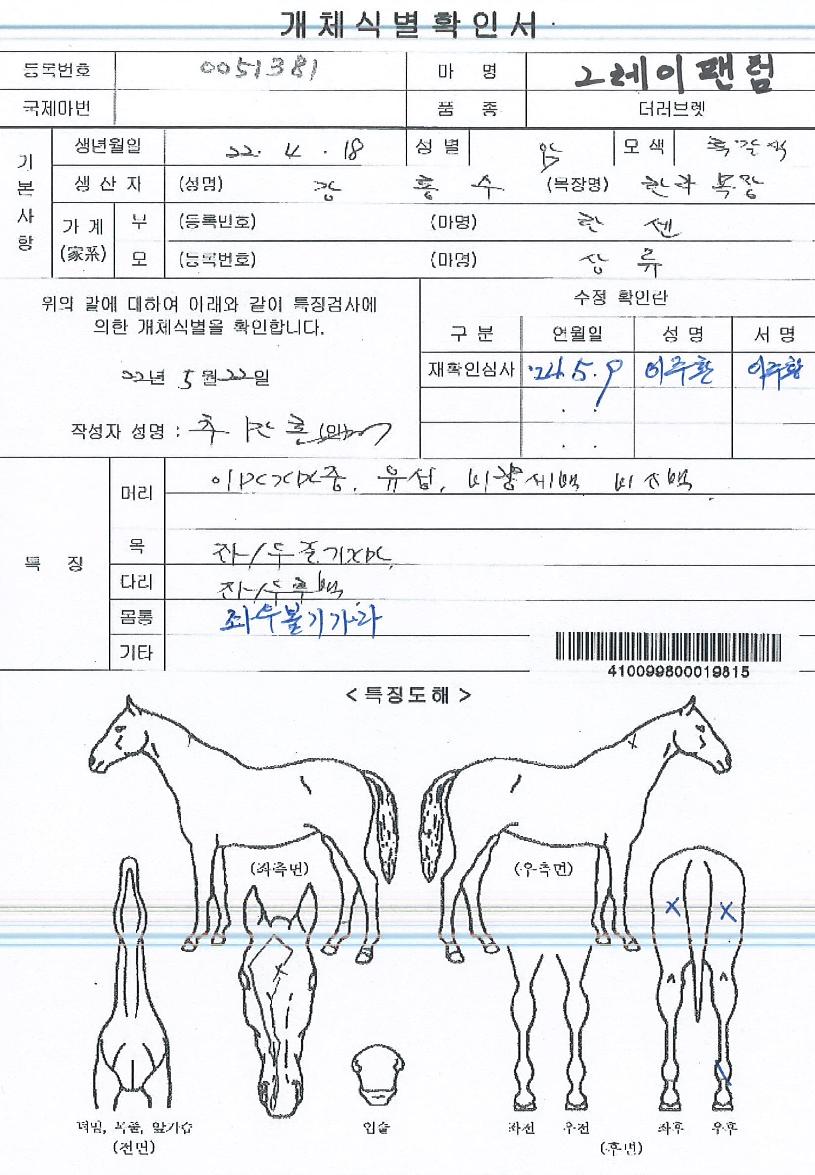 개체식별확인서
등록번호 0051381 마 명 그레이팬텀
국제마번 품 종 더러브렛
기본사항
생년월일 22. 4. 18 성별 암 모색 흑갈색
생 산 자 (성명) 강 홍 수 (목장명) 한라목장
가계(家系) 부 (등록번호) (마명) 한 센
모 (등록번호) (마명) 상 류
위의 말에 대하여 이래와 같이 특징검사에
의한 개체식별을 확인합니다.
22년 5월 22일
작성자 성명 : (인)
수정 확인란
구 분 연월일 성 명 서 명
재확인심사 '24.5.9 이주환 이주환
. .
. .
특 징
머리 유성, 비량세백 비소백
목
다리
몸통 좌우볼기가마
기타
410099800019815
<특징도해>
(좌측면) (우측면)
턱밑, 목줄, 앞가슴
(전면)
입술
좌전 우전 좌후 우후
(후면)